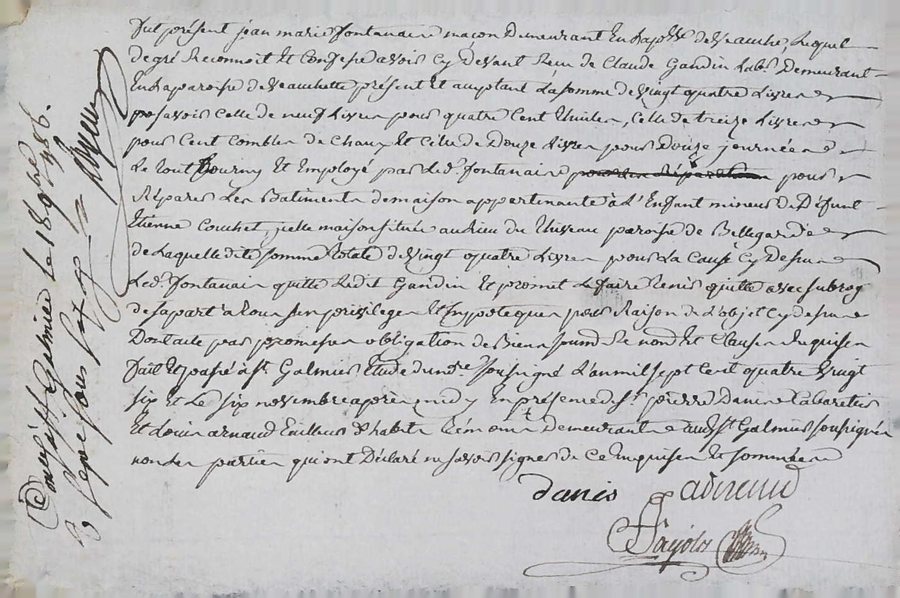 fut présent jean marie fontanaix maçon Demeurant En la psse de Veauche, Lequel
de gré Reconnoit Et Confesse avoir Cy Devant Reçu de Claude Gandin Labr. Demeurant
En La paroisse de Veauchette présent Et acceptant La somme de vingt quatre Livres
scavoir Celle de neuf Livres pour quatre Cent Thuiles, Celle de treize Livres
pour Cent Combles de Chaux Et Celle de Douze Livres pour Douze journées
Le tout fourny Et Employé par Led. fontanaix pour
Réparer Les Batiments de maison appartenante à L'Enfant mineur de Défunt
Etienne Couchet, icelle maison située au Lieu du Thiseau paroisse de Bellegarde
de Laquelle dite somme totale de vingt quatre Livres pour La Cause Cy Dessus
Led. fontanaix quitte Ledit Gandin Et promet Le faire tenir quitte avec subrog
de sa part a tous ses privileges Et hypoteques pour Raison de L'objet Cy dessus
Dont acte par promesses obligation de Biens soumis Renonc Et Clauses Requises
fait Et passé a St. Galmier Etude du nre. soussigné L'an mil sept Cent quatre vingt
six Et Le six novembre après midy En présence de sr. pierre Danis Cabaretier
Et Louis arnaud tailleur d'habits témoins demeurants aud. St Galmier soussignés
non Les parties qui ont Déclaré ne savoir signer de Ce Enquises Et sommées
danis adrenaud
à St. Galmier le 18 9bre 1786.
Reçu